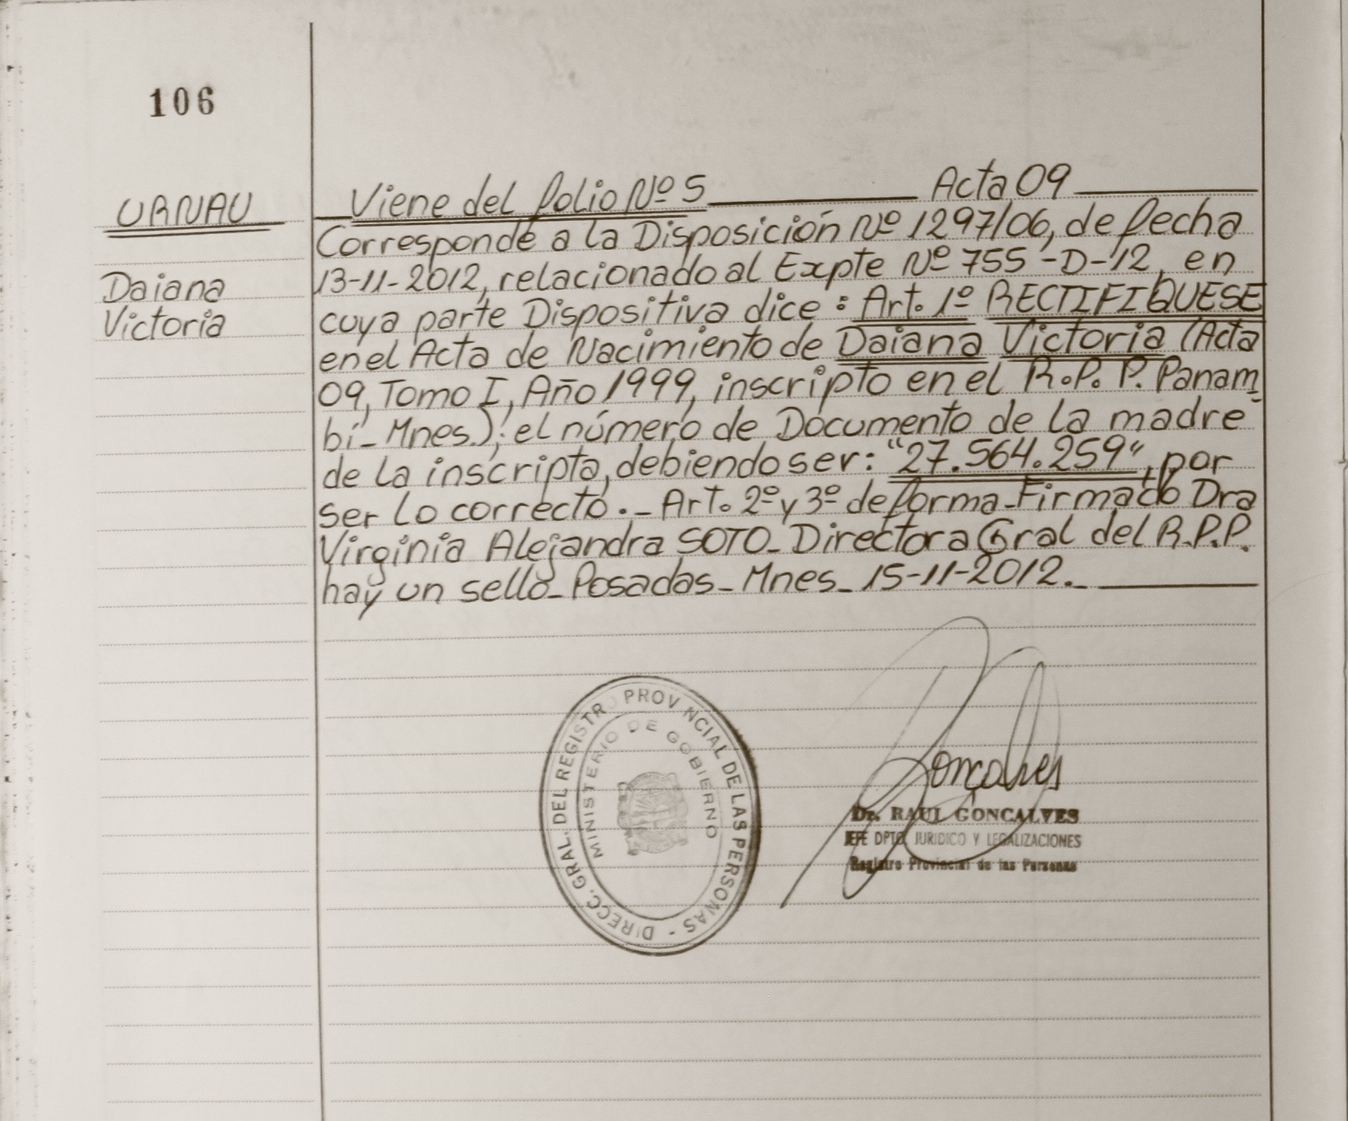 106
URNAU
Daiana
Victoria
Viene del folio Nº 5 Acta 09
Corresponde a la Disposición Nº 1297/06, de fecha
13-11-2012, relacionado al Expte Nº 755-D-12, en
cuya parte Dispositiva dice: Art. 1º RECTIFIQUESE
en el Acta de Nacimiento de Daiana Victoria (Acta
09, Tomo I, Año 1999, inscripto en el R.P.P. Panam
bí- Mnes.); el número de Documento de la madre
de la inscripta, debiendo ser: "27.564.259", por
ser lo correcto.- Art. 2º y 3º de forma-Firmado Dra
Virginia Alejandra SOTO- Directora Gral del R.P.P.
hay un sello- Posadas- Mnes- 15-11-2012.-
DIRECC. GRAL. DEL REGISTR PROVINCIAL DE LAS PERSONAS -
MINISTERIO DE GOBIERNO
Goncalves
Dr. RAUL GONCALVES
JEFE DPTO JURIDICO Y LEGALIZACIONES
Registro Provincial de las Personas